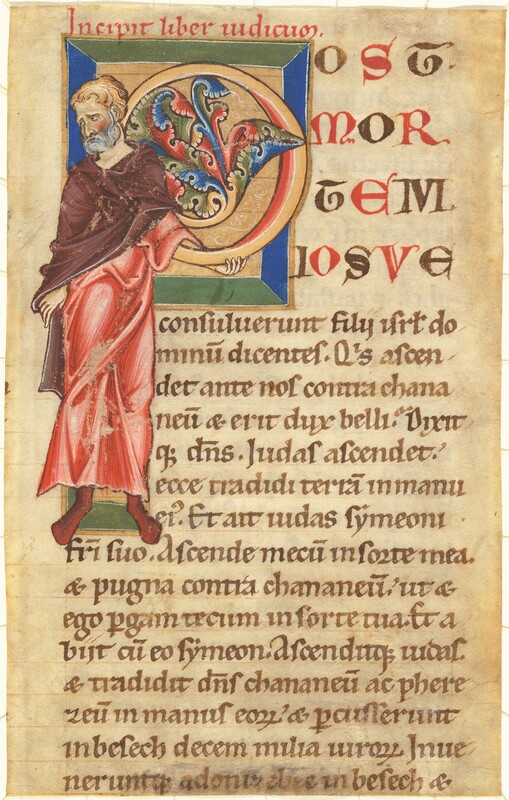 Incipit liber iudicum.
POST
MOR
TEM
IOSVE
consuluerunt filii isrł do
minū dicentes. Qͥs ascen
det ante nos contra chana
neū & erit dux belli. Dixit
q; dn̄s. Iudas ascendet.
ecce tradidi terrā in manu
ei᾽. Et ait iudas symeoni
fr̄i suo. Ascende mecū in sorte mea.
& pugna contra chananeū. ut &
ego ꝑgam tecum in sorte tua. Et a
biit cū eo symeon. Ascenditq; iudas
& tradidit dn̄s chananeū ac phere
zeū in manus eoꝝ. & ꝑcusserunt
in besech decem milia uiroꝝ. Inue
neruntq; adoni in besech &